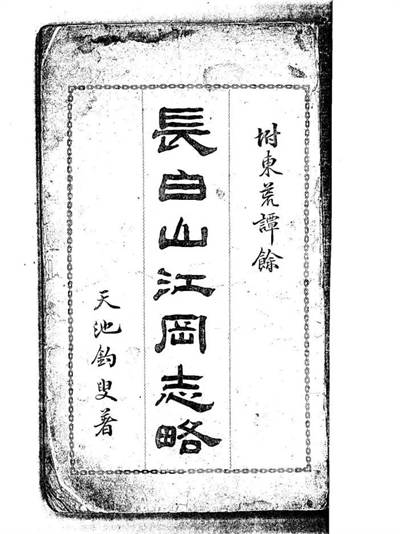 坿東荒譚餘
長白山江岡志略
天池釣叟著